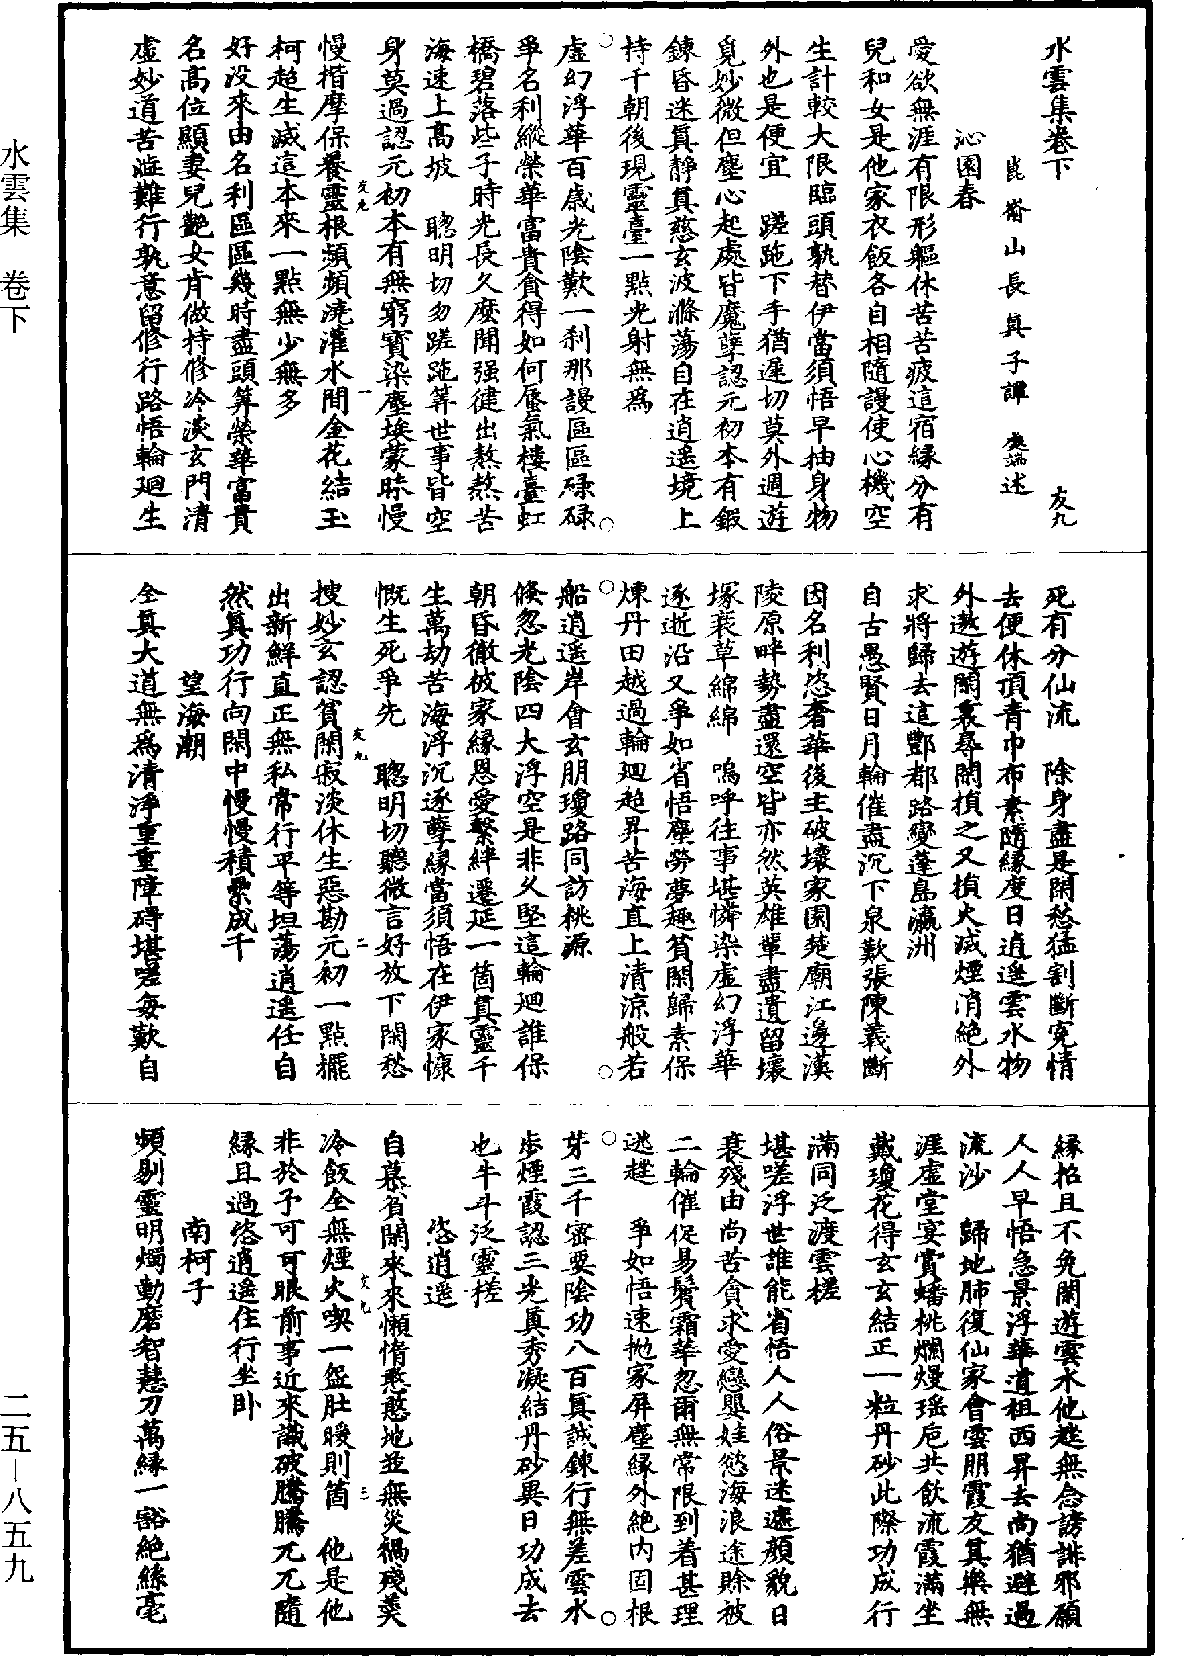 水雲集卷下　友九
崑崙山長真子譚　處端述
沁園春
愛欲無涯有限形軀休苦苦疲這宿緣分有
兒和女是他家衣飯各自相隨謾使心機空
生計較大限臨頭孰替伊當須悟早抽身物
外也是便宜　蹉跎下手猶遲切莫外週遊
覓妙微但塵心起處皆魔孽認元初本有鍜
鍊昏迷真靜真慈玄波滌蕩自在逍遥境上
持千朝後現靈臺一點光射無為
○　○
虛幻浮華百歲光陰歎一剎那謾區區碌碌
爭名利縱榮華富貴貪得如何蜃氣樓臺虹
橋碧落些子時光長久麼聞强健出熬熬苦
海速上高坡　聰明切勿蹉跎筭世事皆空
身莫過認元初本有無窮寳染塵埃蒙昧慢
慢楷摩保養靈根頻頻澆灌水間金花結玉
柯超生滅這本來一點無少無多
好没來由名利區區幾時盡頭筭榮華富貴
名高位顯妻兒艷女肯做持修冷淡玄門清
虛妙道苦澁難行孰意留修行路悟輪廻生
死有分仙流　除身盡是閑愁猛割斷寃情
去便休頂青巾布素隨緣度日逍遥雲水物
外遨遊閙裏尋閑損之又損火滅煙消絶外
求將歸去這酆都路變蓬島瀛洲
自古愚賢日月輪催盡沉下泉歎張陳義斷
因名利恣奢華後主破壞家園楚廟江邊漢
陵原畔勢盡還空皆亦然英雄輩盡遺留壞
塚衰草綿綿　嗚呼往事堪憐染虛幻浮華
逐逝沿又爭如省悟塵勞夢趣貧閑歸素保
煉丹田越過輪廻超昇苦海直上清涼般若
○　○
船逍遥岸會玄朋瓊路同訪桃源
倐忽光陰四大浮空是非久堅這輪廻誰保
朝昏徹彼家緣恩愛繫絆遷延一箇真靈千
生萬劫苦海浮沉逐孽緣當須悟在伊家慷
慨生死爭先　聰明切聽微言好放下閑愁
搜妙玄認貧閑寂淡休生惡勘元初一點擺
出新鮮直正無私常行平等坦蕩逍遥任自
然真功行向閑中慢慢積纍成千
望海潮
全真大道無為清淨重重障碍堪嗟每歎自
緣招且不免閑遊雲水他趂無念謗誹邪願
人人早悟急景浮華道祖西昇去尚猶避過
流沙　歸地肺復仙家會雲朋霞友其樂無
涯虛堂宴賞蟠桃爛熳瑶巵共飲流霞滿坐
戴瓊花得玄玄結正一粒丹砂此際功成行
滿同泛渡雲槎
堪嗟浮世誰能省悟人人俗景迷遮顔貌日
衰殘由尚苦貪求愛戀嬰娃慾海浪途賒被
二輪催促易鬢霜華忽爾無常限到着甚理
逃趖　爭如悟速抛家屏塵緣外絶内固根
○　○
芽三千密要陰功八百真誠鍊行無差雲水
步煙霞認三光真秀凝結丹砂異日功成去
也牛斗泛靈槎
恣逍遥
自慕貧閑來來懶惰憨憨地並無災禍殘羮
冷飯全無煙火喫一盌肚暖則箇　他是他
非於予可可眼前事近來識破騰騰兀兀隨
緣且過恣逍遥住行坐卧
南柯子
頻剔靈明燭動磨智慧刀萬緣一豁絶絲毫
水雲集　卷下
二五－八五九